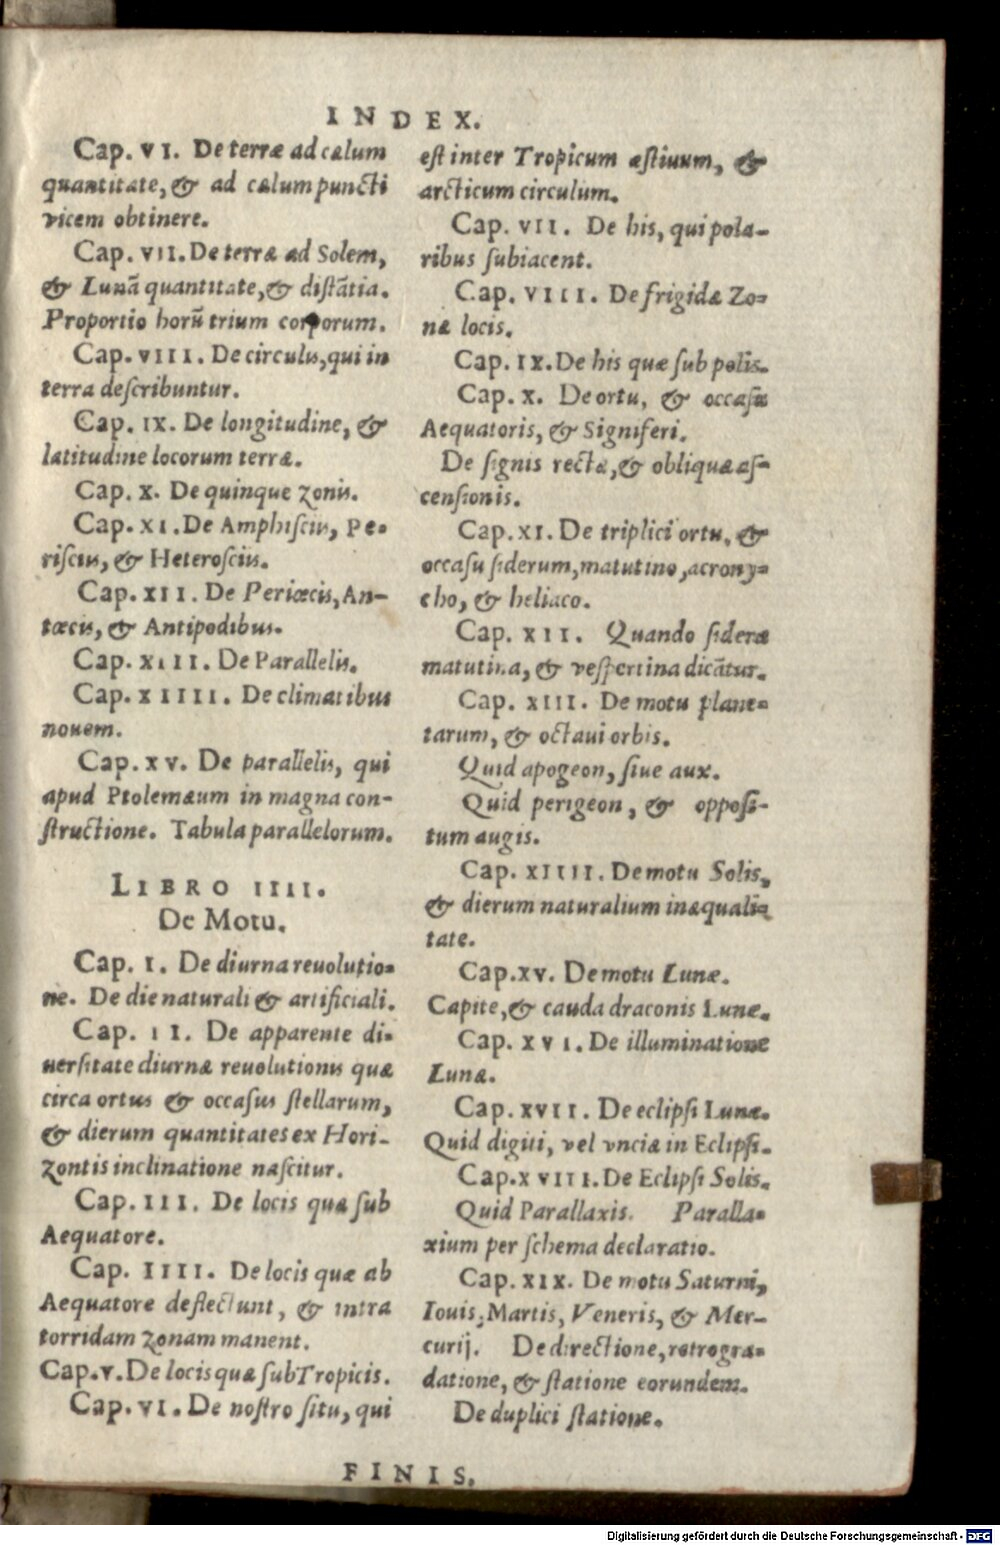 INDEX.
Cap. VI. De terræ ad cælum
quantitate, & ad cælum puncti
vicem obtinere.
Cap. VII. De terræ ad Solem,
& Lunã quantitate, & distãtia.
Proportio horũ trium corporum.
Cap. VIII. De circulis, qui in
terra describuntur.
Cap. IX. De longitudine, &
latitudine locorum terræ.
Cap. X. De quinque zonis.
Cap. XI. De Amphisciis, Pe-
risciis, & Heterosciis.
Cap. XII. De Periœcis, An-
tœcis, & Antipodibus.
Cap. XIII. De Parallelis.
Cap. XIIII. De climatibus
nouem.
Cap. XV. De parallelis, qui
apud Ptolemæum in magna con-
structione. Tabula parallelorum.
LIBRO IIII.
De Motu.
Cap. I. De diurna reuolutio-
ne. De die naturali & artificiali.
Cap. II. De apparente di-
uersitate diurnæ reuolutionis quæ
circa ortus & occasus stellarum,
& dierum quantitates ex Hori-
zontis inclinatione nascitur.
Cap. III. De locis quæ sub
Aequatore.
Cap. IIII. De locis quæ ab
Aequatore deflectunt, & intra
torridam zonam manent.
Cap. V. De locis quæ sub Tropicis.
Cap. VI. De nostro situ, qui
est inter Tropicum æstiuum, &
arcticum circulum.
Cap. VII. De his, qui pola-
ribus subiacent.
Cap. VIII. De frigidæ Zo-
næ locis.
Cap. IX. De his quæ sub polis.
Cap. X. De ortu, & occasu
Aequatoris, & Signiferi.
De signis rectæ, & obliquæ as-
censionis.
Cap. XI. De triplici ortu, &
occasu siderum, matutino, acrony-
cho, & heliaco.
Cap. XII. Quando sidera
matutina, & vespertina dicãtur.
Cap. XIII. De motu plane-
tarum, & octaui orbis.
Quid apogeon, siue aux.
Quid perigeon, & opposi-
tum augis.
Cap. XIIII. De motu Solis,
& dierum naturalium inæquali-
tate.
Cap. XV. De motu Lunæ.
Capite, & cauda draconis Lunæ.
Cap. XVI. De illuminatione
Lunæ.
Cap. XVII. De eclipsi Lunæ.
Quid digiti, vel vnciæ in Eclipsi.
Cap. XVIII. De Eclipsi Solis.
Quid Parallaxis. Paralla-
xium per schema declaratio.
Cap. XIX. De motu Saturni,
Iouis, Martis, Veneris, & Mer-
curij. De directione, retrogra-
datione, & statione eorundem.
De duplici statione.
FINIS.
Digitalisierung gefördert durch die Deutsche Forschungsgemeinschaft - DFG